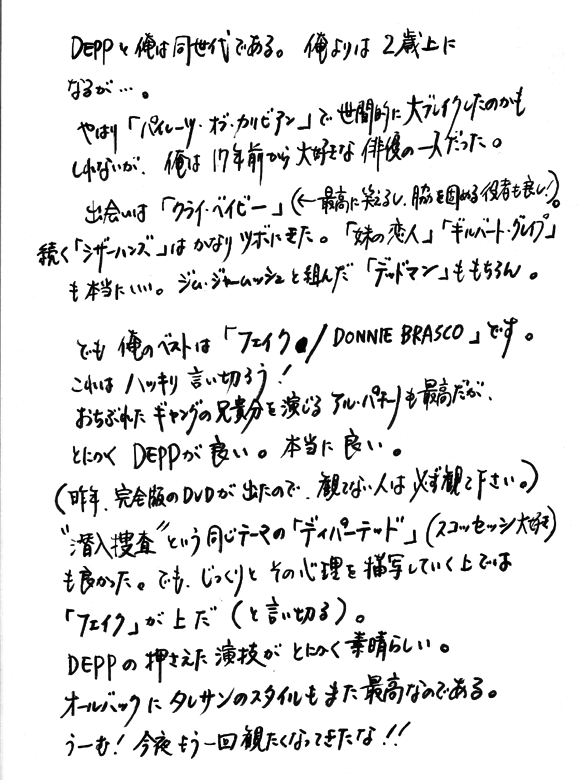 DEPPと俺は同世代である。俺よりは2歳上に
なるが…。
やはり「パイレーツ・オブ・カリビアン」で世間的に大ブレイクしたのかも
しれないが、俺は17年前から大好きな俳優の一人だった。
出会いは「クライ・ベイビー」(←最高に笑えるし、脇を固める役者も良し!)。
続く「シザーハンズ」はかなりツボにきた。「妹の恋人」「ギルバート・グレイプ」
も本当にいい。ジム・ジャームッシュと組んだ「デッドマン」ももちろん。
でも俺のベストは「フェイク/DONNIE BRASCO」です。
これはハッキリ言い切ろう!
おちぶれたギャングの兄貴分を演じるアル・パチーノも最高だが、
とにかくDEPPが良い。本当に良い。
(昨年、完全版のDVDが出たので、観てない人は必ず観て下さい。)
"潜入捜査"という同じテーマの「ディパーテッド」(スコッセッシ大好き)
も良かった。でも、じっくりとその心理を描写していく上では
「フェイク」が上だ(と言い切る)。
DEPPの押さえた演技がとにかく素晴らしい。
オールバックにタレサンのスタイルもまた最高なのである。
うーむ!今夜もう一回観たくなってきたな!!